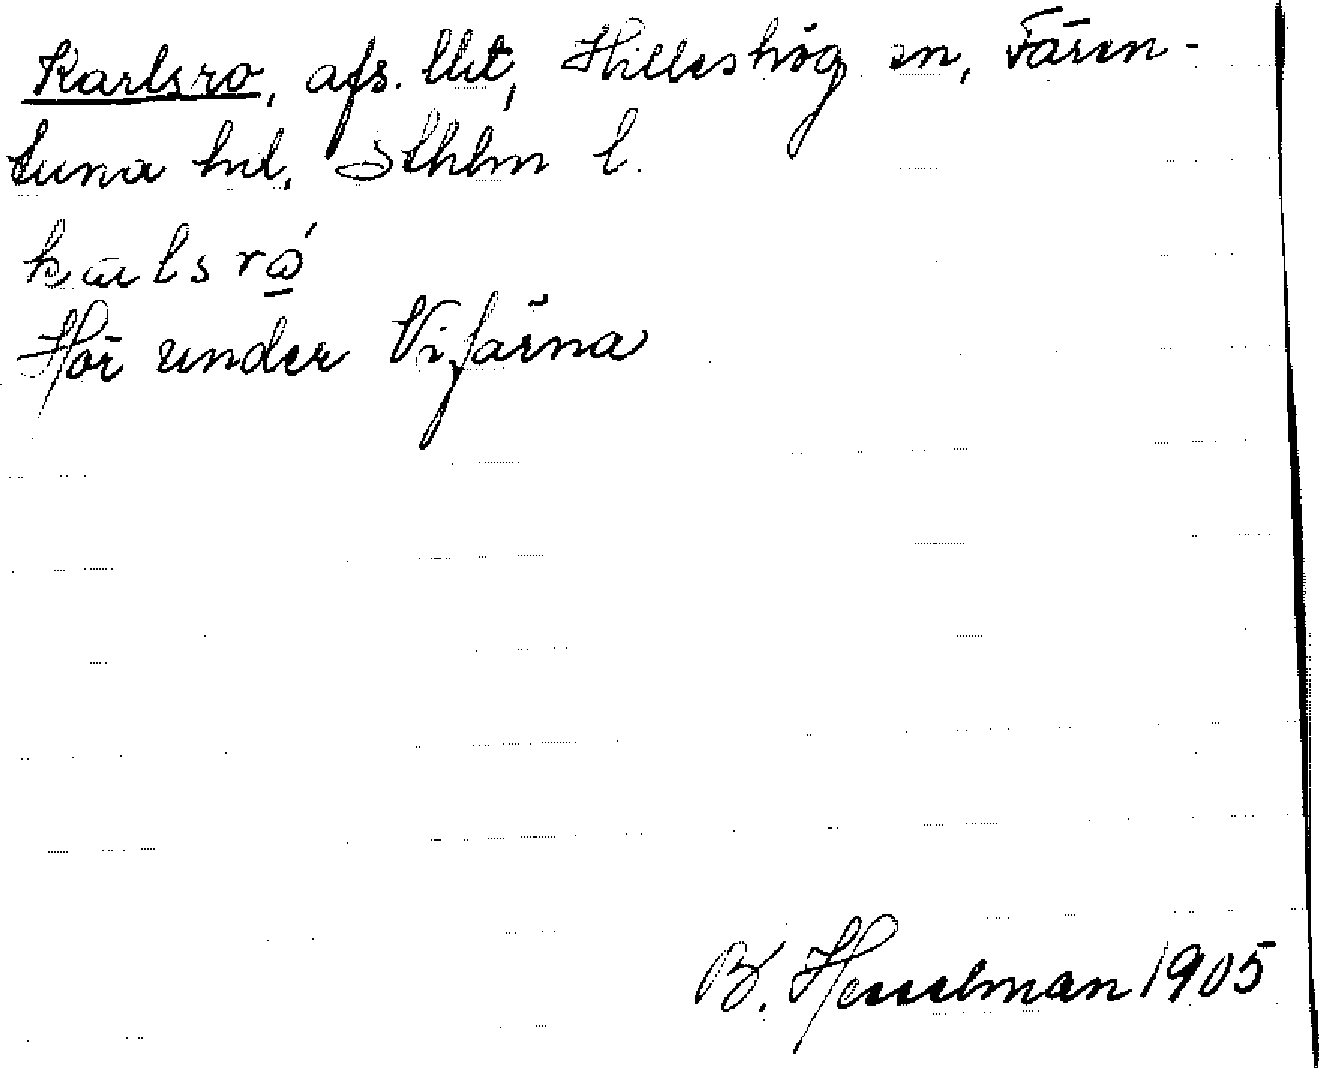 Karlsro, afs. llht, Hilleshög sn, Fären-
tuna hd, Sthlm l.
kālsró
Hör under Vifärna
B. Hesselman 1905